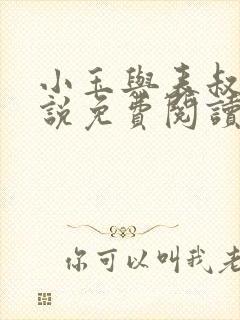 小玉與表叔
說免費閱讀
你可以叫我老